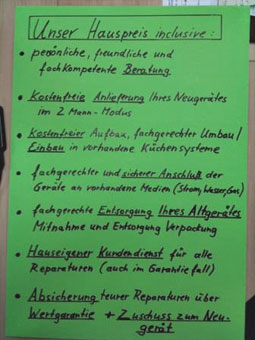 Unser Hauspreis inclusive:
• persönliche, freundliche und
fachkompetente Beratung
• Kostenfreie Anlieferung Ihres Neugerätes
im 2 Mann-Modus
• Kostenfreier Aufbau, fachgerechter Umbau/
Einbau in vorhandene Küchensysteme
• fachgerechter und sicherer Anschluß der
Geräte an vorhandene Medien (Strom, Wasser, Gas)
• fachgerechte Entsorgung Ihres Altgerätes
Mitnahme und Entsorgung Verpackung
• Hauseigener Kundendienst für alle
Reparaturen (auch im Garantiefall)
• Absicherung teurer Reparaturen über
Wertgarantie + Zuschuss zum Neu-
gerät